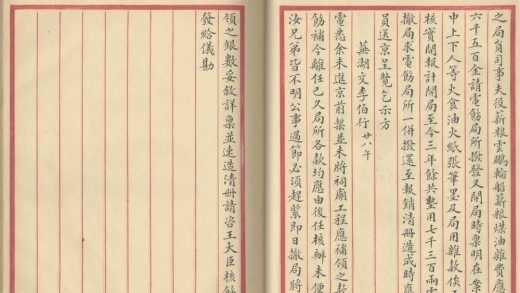 之局員司事夫役薪粮雲鵬輪船薪粮煤油雜費應
六千五百金請電飭局所撥發又開局時稟明在案
中上下人等火食油火紙張筆墨及局用雜款俟
核實開報計開局至今三年餘共墊用七千三百兩
撤局求電飭局所一併撥還至報銷清冊造成時應
員送京呈覽乞示方
蕪湖交李伯行 廿八午
電悉余未進京前槩並未將祠廟工程應補領之款
飭補今離任已久局所各款均應由後任核辦未便
汝兄弟皆不明公事過節必須趕緊即日撤局將
領之銀數妥敘詳稟並速造清冊請咨王大臣核飭
發給儀勘